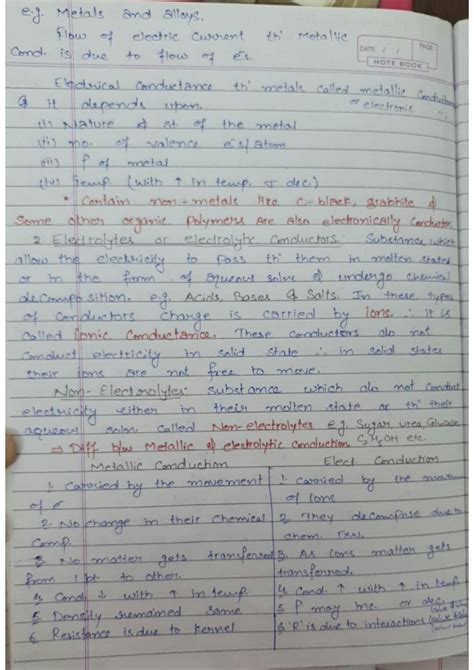 e.g. Metals and alloys.
Flow of electric current th' Metallic
DATE / / PAGE
NOTE BOOK
Cond. is due to flow of e⁻s.
Electrical conductance th' metals called metallic
or electronic
& it depends upon.
(i) Nature & st. of the metal
(ii) no. of valence e⁻s/atom
(iii) ρ of metal
(iv) Temp. (with ↑ in temp. σ dec.)
• Certain non-metals like C-black, graphite &
Some other organic Polymers are also electronically Conductor
2. Electrolytes or electrolytic Conductors: Substance which
allow the electricity to pass th' them in molten states
or in the form of aqueous solns & undergo chemical
decomposition. e.g. Acids, Bases & Salts. In these types
of conductors charge is carried by ions. ∴ it is
called ionic conductance. These conductors do not
conduct electricity in solid state ∴ in solid states
their ions are not free to move.
Non-Electrolytes: Substance which do not conduct
electricity either in their molten state or th' their
aqueous soln. called Non-electrolytes e.g. Sugar, urea, Glucose
C₂H₅OH etc.
⇒ Diff b/w Metallic & electrolytic conduction
Metallic Conduction
1. Carried by the movement
of e⁻
2. No change in their Chemical
Comp.
3. No matter gets transferred
from 1 pt to other.
4. Cond. ↓ with ↑ in temp
5. Density remained same
6. Resistance is due to kernel
Elect. Conduction
1. Carried by the
of Ions
2. They decompose due to
chem. rxn.
3. As ions matter gets
transferred.
4. Cond. ↑ with ↑ in temp
5. ρ may inc. or dec.
6. 'R' is due to interactions